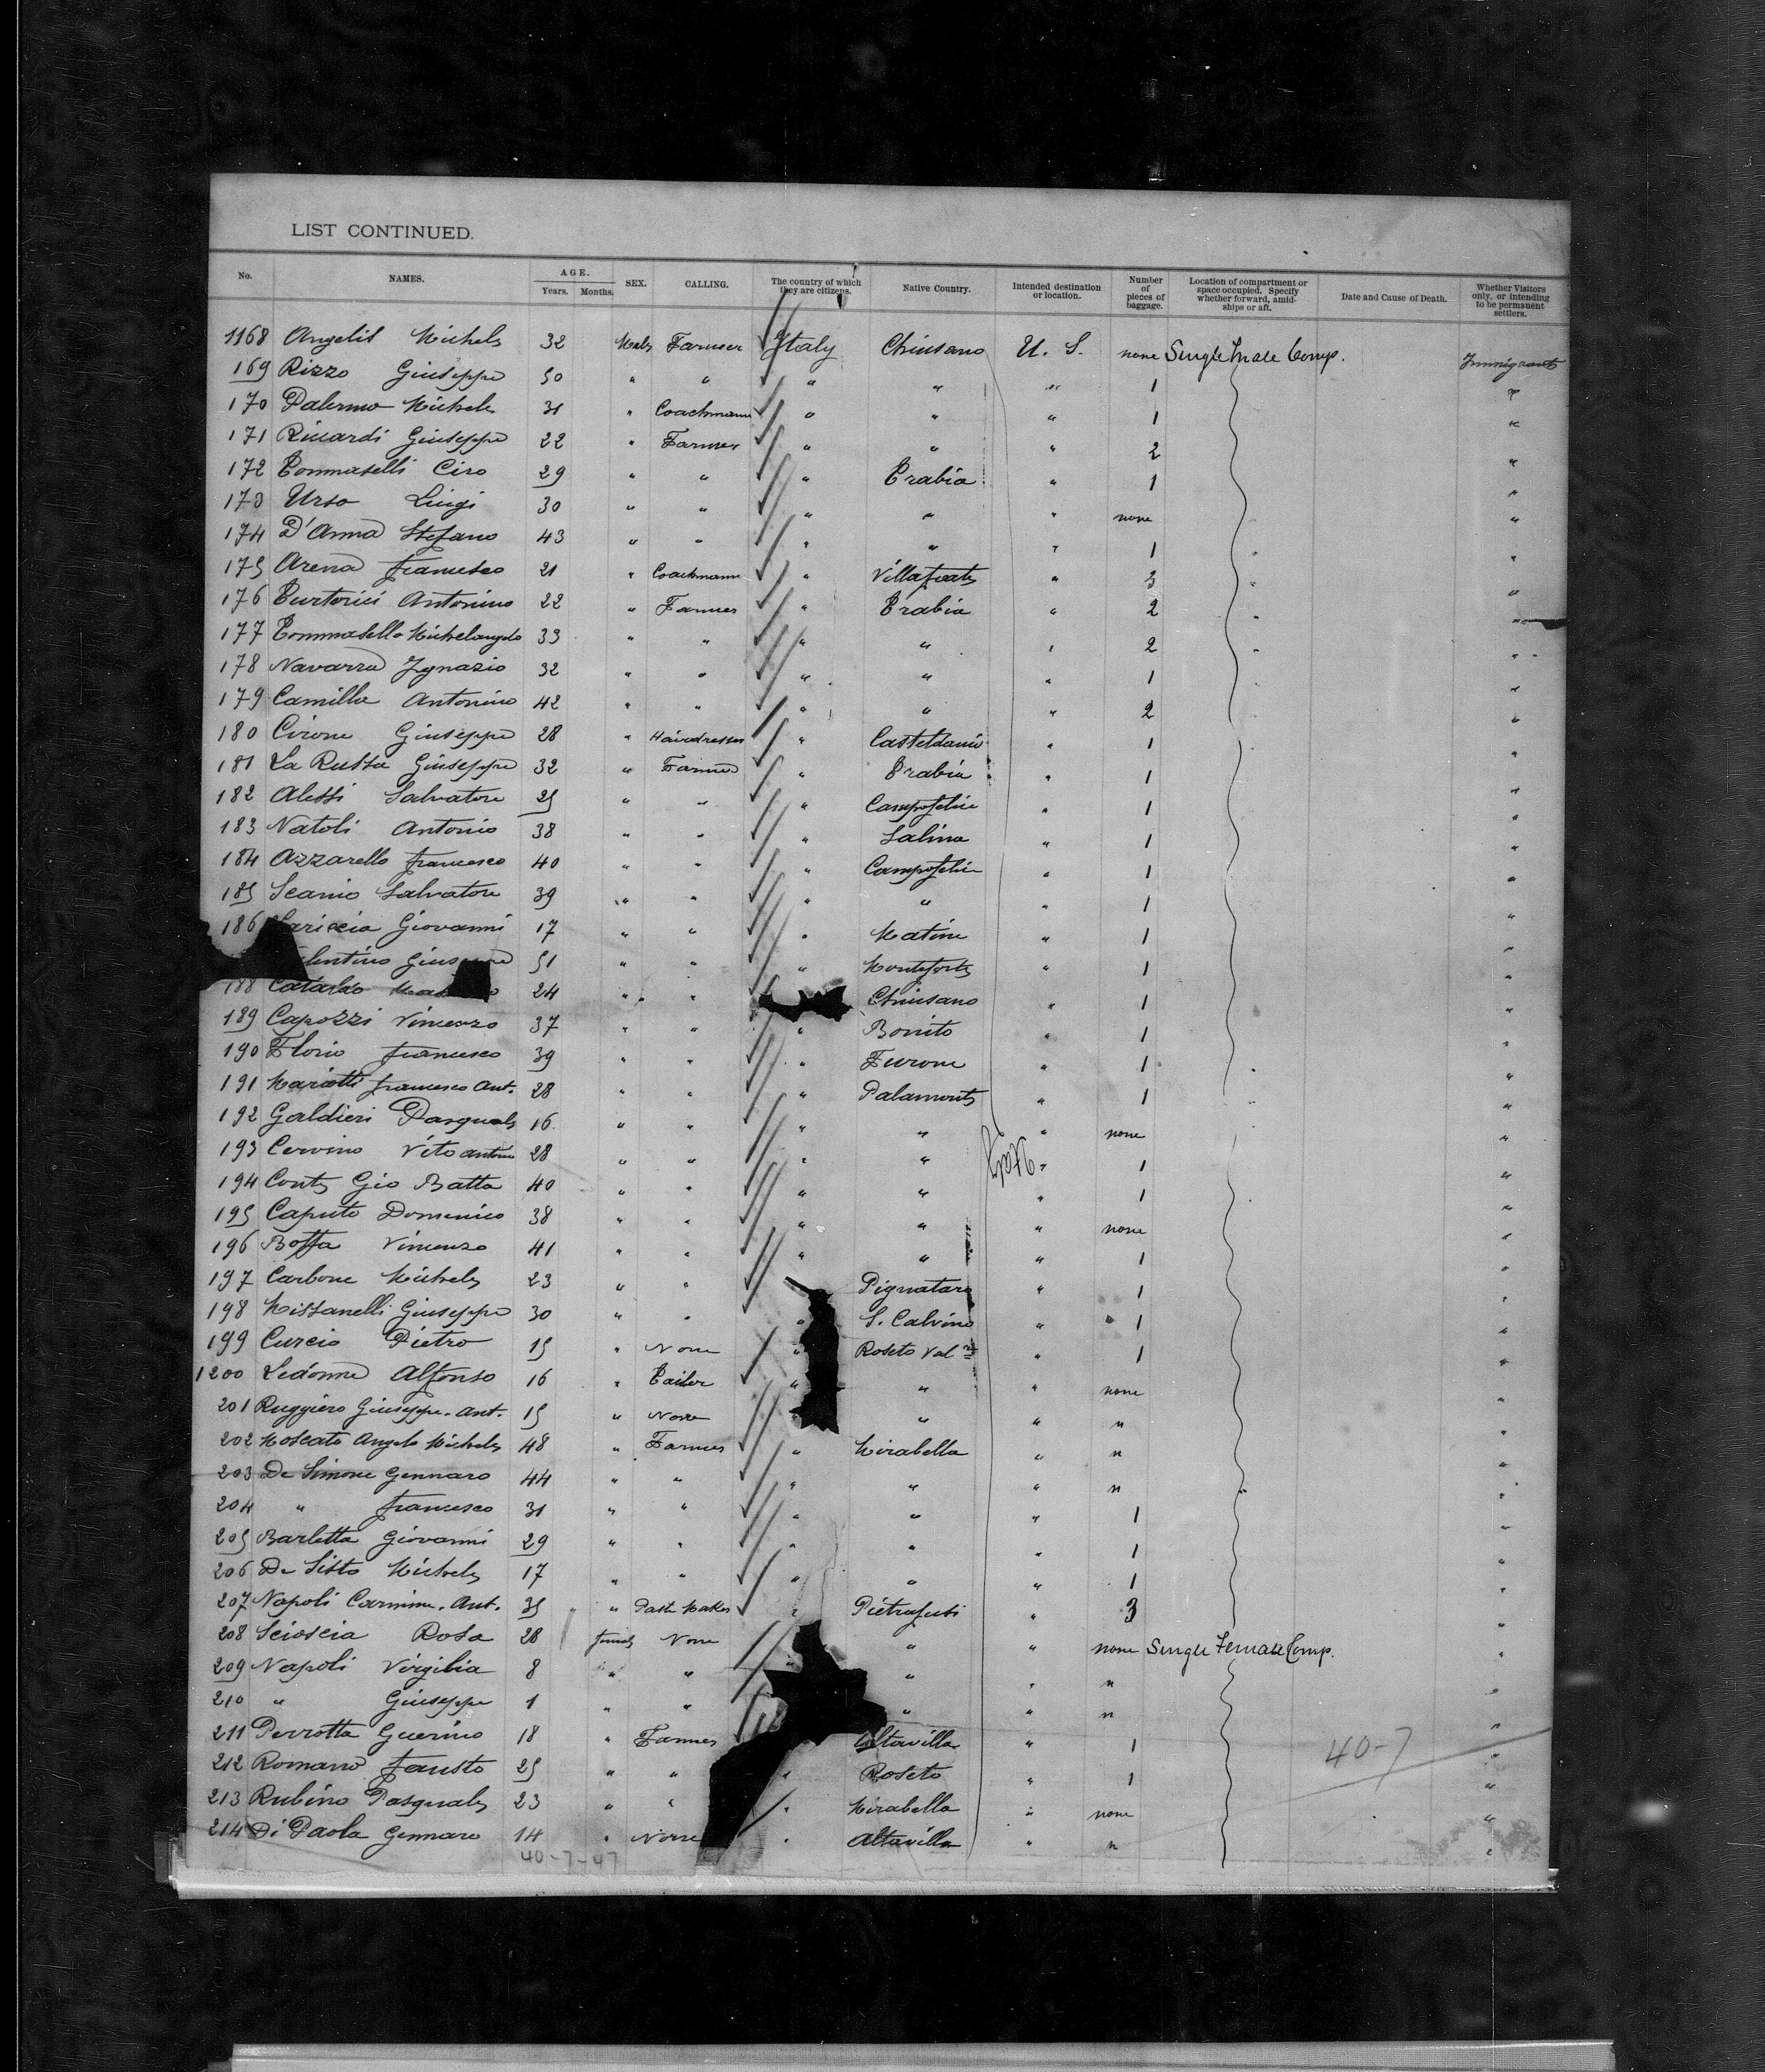 LIST CONTINUED.
No. NAMES. AGE. Years. Months. SEX. CALLING. The country of which they are citizens. Native Country. Intended destination or location. Number of pieces of baggage. Location of compartment or space occupied. Specify whether forward, amidships or aft. Date and Cause of Death. Whether Visitors only, or intending to be permanent settlers.
1168 Angelis Michele 32 Male Farmer Italy Chiusano U. S. none Single Male Comp. Immigrant
169 Rizzo Giuseppe 50 " " " " " 1 "
170 Palermo Michele 31 " Coachmann " " " 1 "
171 Riccardi Giuseppe 22 " Farmer " " " 2 "
172 Tommaselli Ciro 29 " " " Trabia " 1 "
173 Urso Luigi 30 " " " " " none "
174 D'Anna Stefano 43 " " " " " 1 "
175 Arena Francesco 21 " Coachmann " Villafrate " 3 "
176 Turtorici Antonino 22 " Farmer " Trabia " 2 "
177 Tommasello Michelangelo 33 " " " " " 2 "
178 Navarra Ignazio 32 " " " " " 1 "
179 Camilla Antonino 42 " " " " " 2 "
180 Cirone Giuseppe 28 " Hairdresser " " 1 "
181 La Russa Giuseppe 32 " Farmer " Trabia " 1 "
182 Alessi Salvatore 25 " " " Campofelice " 1 "
183 Natoli Antonio 38 " " " Salina " 1 "
184 Azzarello Francesco 40 " " " Campofelice " 1 "
185 Scanio Salvatore 39 " " " " " 1 "
186 Giovanni 17 " " " Matine " 1 "
51 " " " Monteforte " 1 "
188 Cataldo 24 " " Chiusano " 1 "
189 Capozzi Vincenzo 37 " " " Bonito " 1 "
190 Florio Francesco 39 " " " Furone " 1 "
191 Mariotti Francesco Ant. 28 " " " Palamonte " 1 "
192 Galdieri Pasquale 16 " " " " " none "
193 Cervino Vito Antonio 28 " " " " " 1 "
194 Conte Gio Batta 40 " " " " " 1 "
195 Caputo Domenico 38 " " " " " none "
196 Boffa Vincenzo 41 " " " " " 1 "
197 Carbone Michele 23 " " Pignataro " 1 "
198 Missanelli Giuseppe 30 " " " S. Calvino " 1 "
199 Curcio Pietro 15 " None " Roseto Val.re " 1 "
1200 Ledonne Alfonso 16 " Tailor " " " none "
201 Ruggiero Giuseppe. Ant. 15 " None " " " "
202 Moscato Angelo Michele 48 " Farmer " Mirabella " " "
203 De Simone Gennaro 44 " " " " " " "
204 " Francesco 31 " " " " " 1 "
205 Barletta Giovanni 29 " " " " " 1 "
206 De Sisto Michele 17 " " " " " 1 "
207 Napoli Carmine. Ant. 35 " Paste Maker " Pietrafusi " 3 "
208 Scioscia Rosa 28 female None " " none Single Female Comp. "
209 Napoli Virgilia 8 " " " " " "
210 " Giuseppe 1 " " " " " "
211 Perrotta Guerino 18 " Farmer Altavilla " 1 "
212 Romano Fausto 25 " " " Roseto " 1 "
213 Rubino Pasquale 23 " " " Mirabella " none "
214 Di Paola Gennaro 14 " None " Altavilla " " "
40-7
40-7-47